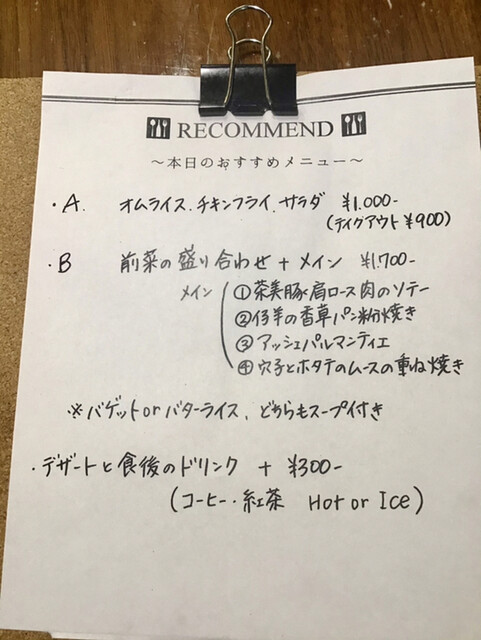 RECOMMEND
～本日のおすすめメニュー～
・A. オムライス.チキンフライ.サラダ ¥1.000-
(テイクアウト ¥900)
・B 前菜の盛り合わせ + メイン ¥1.700-
メイン ①茶美豚肩ロース肉のソテー
②仔羊の香草パン粉焼き
③アッシェパルマンティエ
④穴子とホタテのムースの重ね焼き
※バゲットorバターライス、どちらもスープ付き
・デザートと食後のドリンク + ¥300-
(コーヒー・紅茶 Hot or Ice)